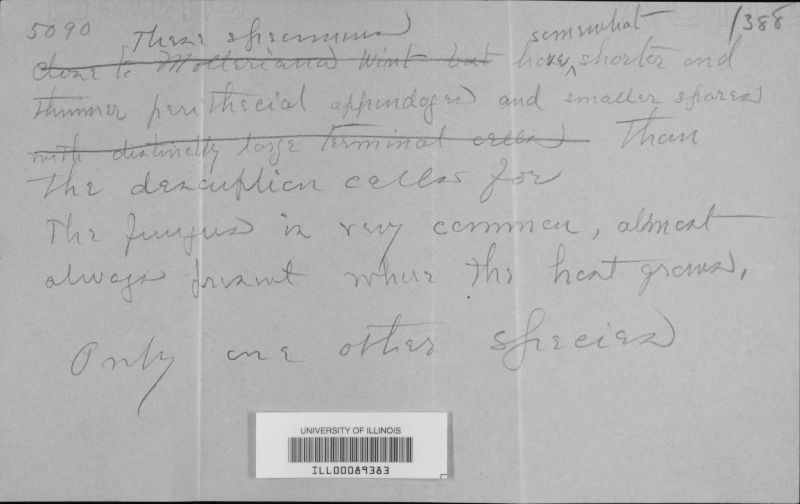 5090 These specimens somewhat 1388
close to Molleriana Wint but have shorter and
thinner perithecial appendages and smaller spores
with distinctly large terminal cells than
the description calls for
The fungus is very common, almost
always present where the host grows.
Only one other species
UNIVERSITY OF ILLINOIS
ILL00089383